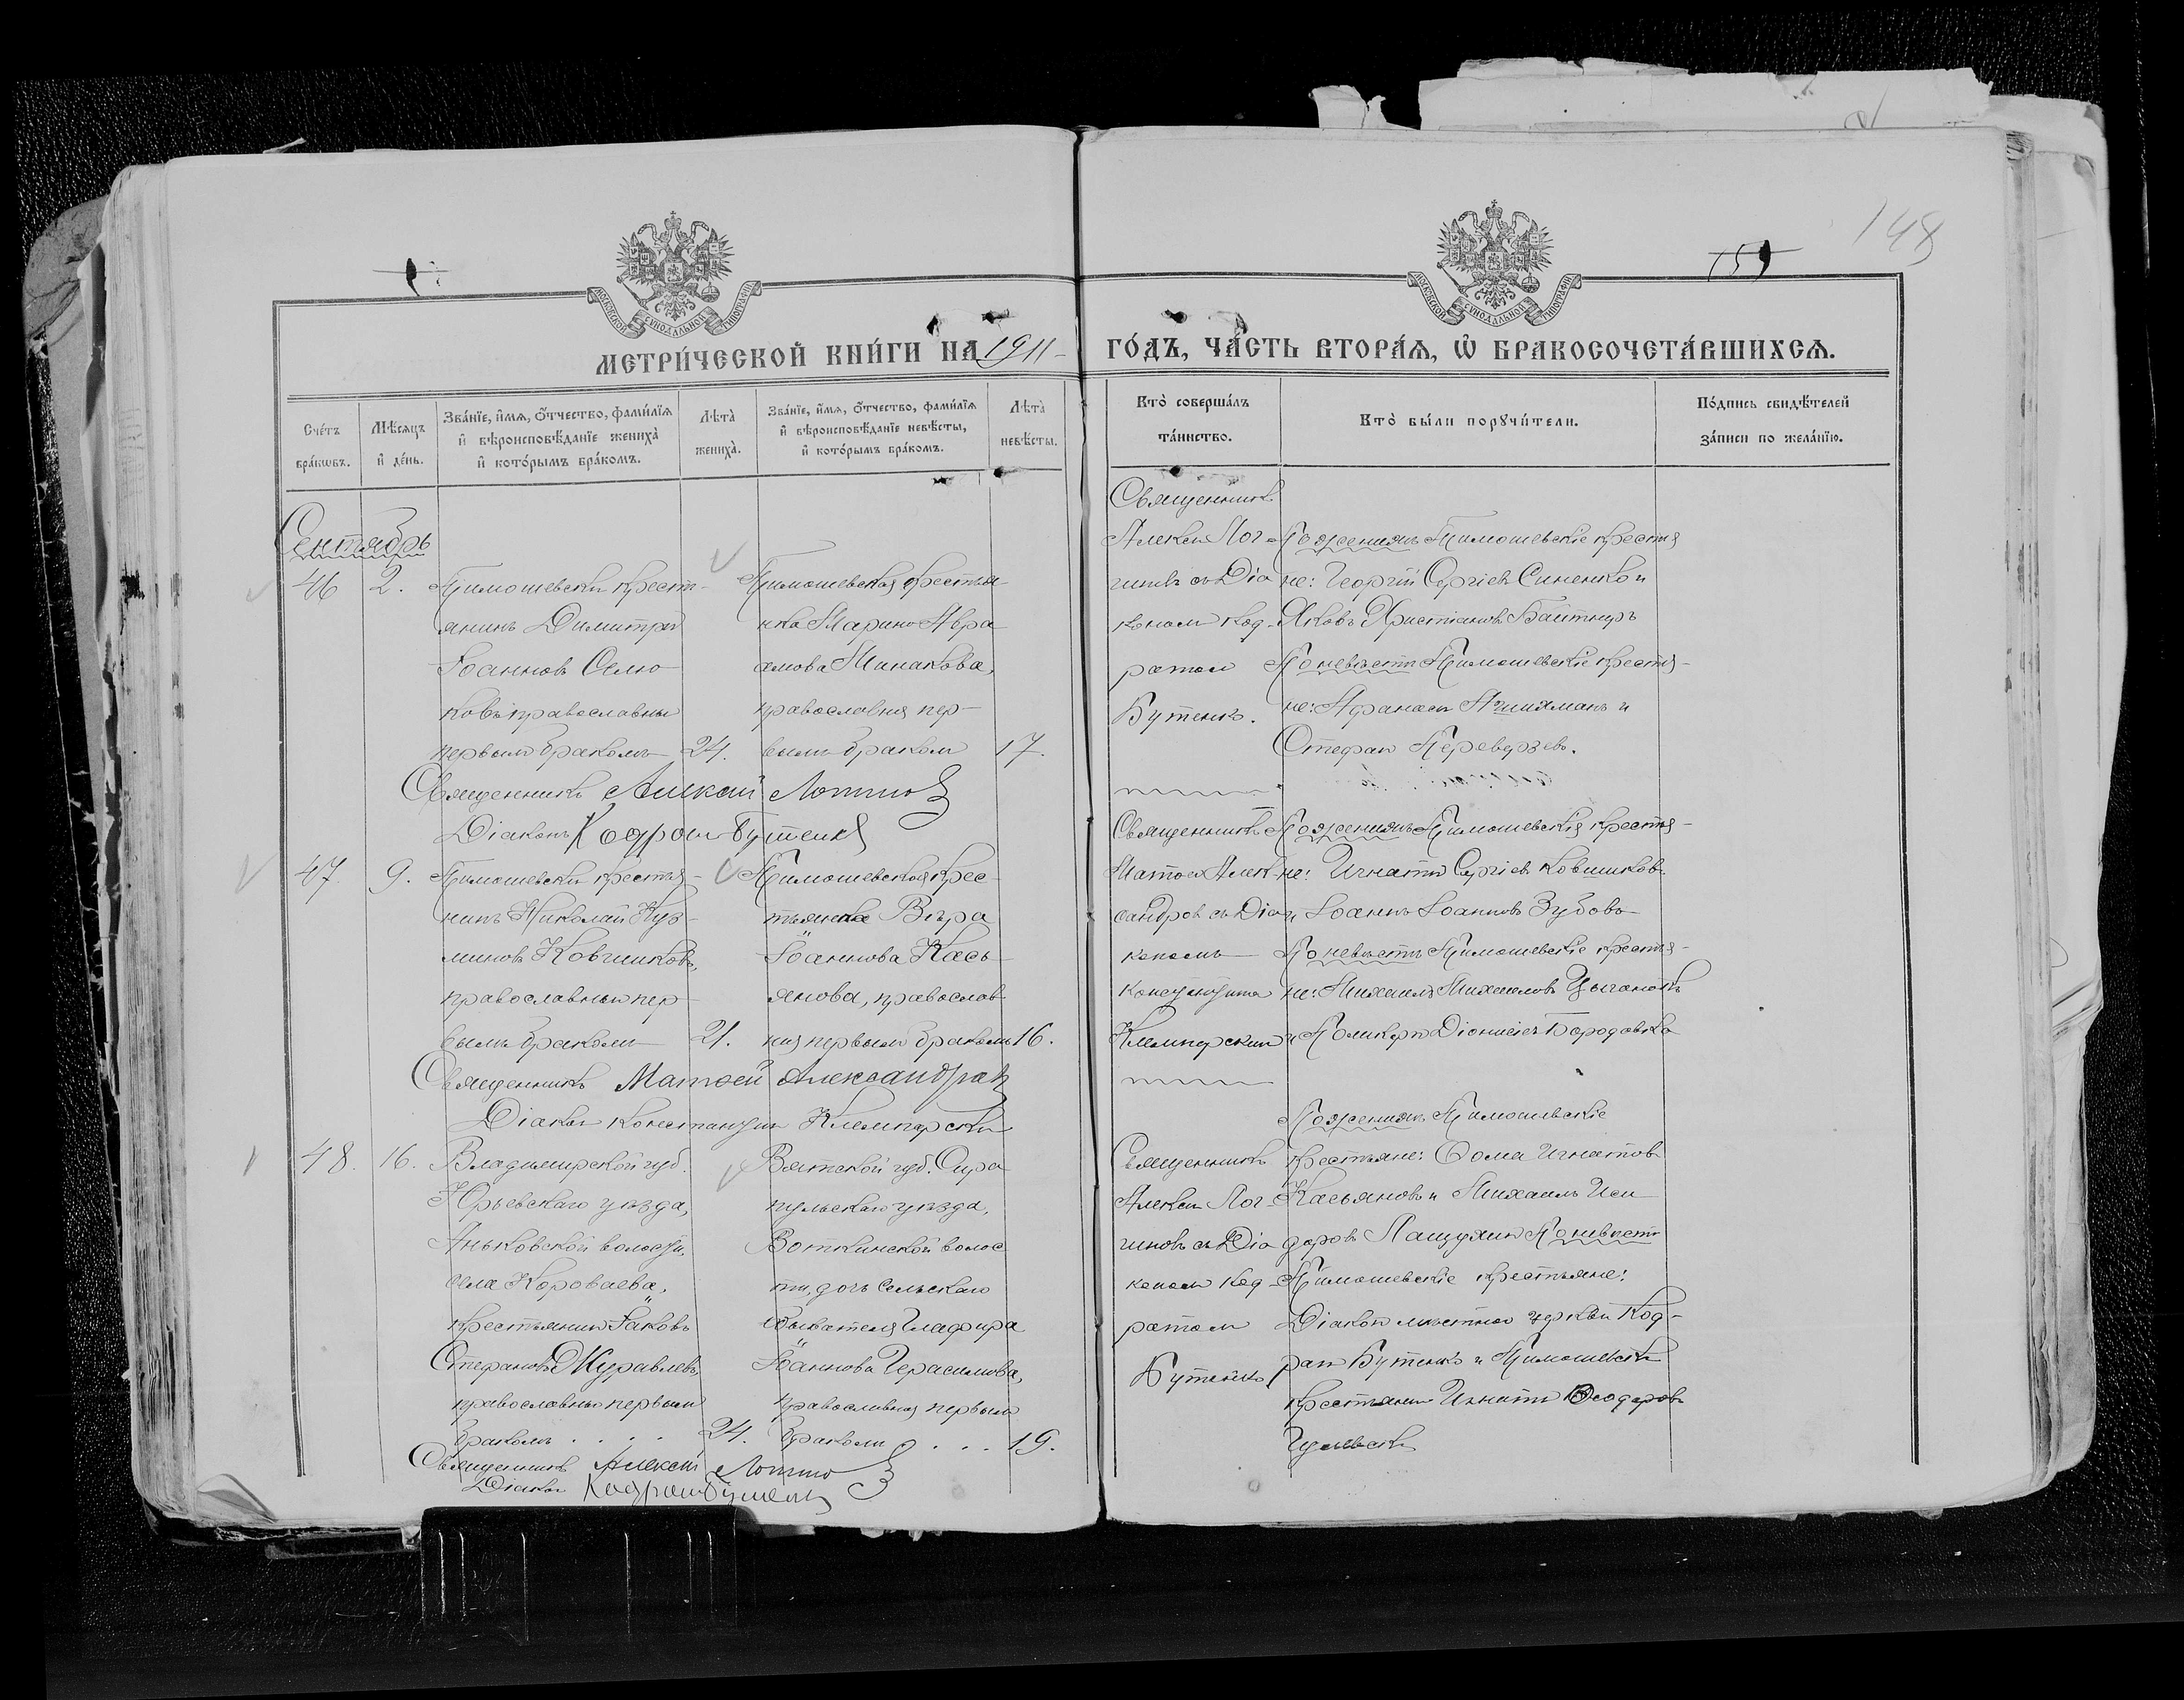 148
159
МОСКОВСКОЙ СѴНОДАЛЬНОЙ ТИПОГРАФІИ
МОСКОВСКОЙ СѴНОДАЛЬНОЙ ТИПОГРАФІИ
МЕТРИ́ЧЕСКОЙ КНИ́ГИ НА 1911
ГО́ДЪ, ЧА́СТЬ ВТОРА́Ѧ, Ѡ҆ БРАКОСОЧЕТА́ВШИХСѦ.
Сче́тъ бра́кѡвъ.
Мѣ́сяцъ и҆ де́нь.
Зва́нїе, и҆́мѧ, ѻ҆́тчество, фами́лїѧ
и҆ вѣроисповѣ́данїе женихà
и҆ кото́рымъ бра́комъ.
Лѣ́та женихà.
Зва́нїе, и҆́мѧ, ѻ҆́тчество, фами́лїѧ
и҆ вѣроисповѣ́данїе невѣ́сты,
и҆ кото́рымъ бра́комъ.
Лѣ́та невѣ́сты.
Кто̀ соверша́лъ та́инство.
Кто̀ бы́ли порꙋчи́тели.
По́дпись свидѣ́телей
за́писи по жела́нїю.
Сентябрь
46 2. Тимошевскій крестьянинъ
Димитрій
Іоанновъ Селюковъ
православный
первымъ бракомъ 24.
Тимошевская крестьянка
Марина Авраамова
Минакова,
православная первымъ
бракомъ 17.
Священникъ
Алексій Логиновъ
съ Діакономъ
Кодратомъ
Бутенко.
По женихѣ Тимошевскіе крестьяне:
Георгій Сергіевъ Синенко и
Яковъ Христіановъ
По невѣстѣ Тимошевскіе крестьяне:
Афанасій и
Стефанъ Переверзевъ.
Священникъ Алексій Логиновъ
Діаконъ Кодратъ Бутенко
47. 9. Тимошевскій крестьянинъ
Николай Кузминовъ
Ковшиковъ,
православный первымъ
бракомъ 21.
Тимошевская крестьянка
Вѣра
Іоаннова Касьянова,
православная
первымъ бракомъ 16.
Священникъ
Матѳей Александровъ
съ Діакономъ
Константиномъ
По женихѣ Тимошевскія крестьяне:
Игнатій Сергіевъ Ковшиковъ
и Іоаннъ Іоанновъ Зубовъ
По невѣстѣ Тимошевскіе крестьяне:
Михаилъ Михаиловъ
и Поликарпъ Діонисіевъ Бородавка
Священникъ Матѳей Александровъ
Діаконъ Константинъ
48. 16. Владимирской губ.
Юрьевскаго уѣзда,
Аньковской волости,
села Короваева,
крестьянинъ Іаковъ
Стефановъ Журавлевъ,
православный первымъ
бракомъ . . . . 24.
Вятской губ. Сарапульскаго
уѣзда,
Воткинской волости,
дочь сельскаго
обывателя Глафира
Іоаннова Герасимова,
православная первымъ
бракомъ . . . 19.
Священникъ
Алексій Логиновъ
съ Діакономъ
Кодратомъ
Бутенко
По женихѣ Тимошевскіе
крестьяне: Ѳома Игнатовъ
Касьяновъ и Михаилъ Исидоровъ
По невѣстѣ
Тимошевскіе крестьяне:
Діаконъ мѣстной церкви Кодратъ
Бутенко и Тимошевскій
крестьянинъ Игнатій Ѳеодоровъ
Священникъ Алексій Логиновъ
Діаконъ Кодратъ Бутенко